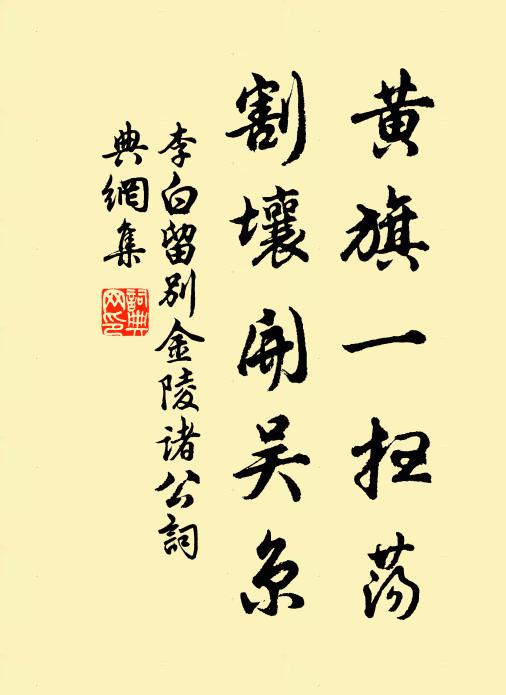 黄旗一扫荡
割壤開吴京
李白留别金陵诸公詞
典網集
詞典
网印